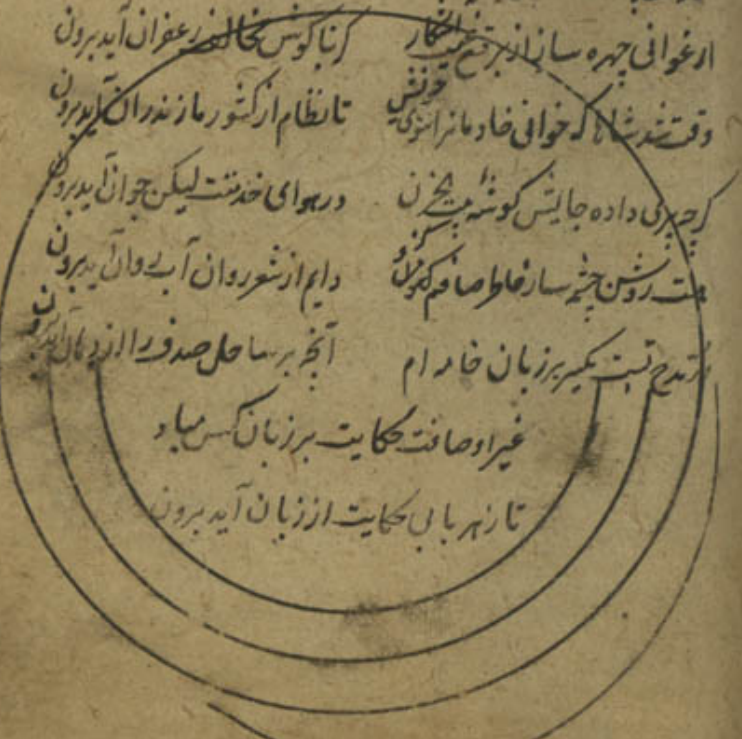 ارغوانی چهره ساز از برقع کز بناگوش بخالف زعفران آید برون
وقت شد شاها که خوانی خادمانرا سوی خویش تا نظام از کشور مازندران آید برون
گرچه پیری داده جایش گوشه بیت حزن در هوای خدمتت لیکن جوان آید برون
هست روشن چشمه سار خاطر صافم کزو دایم از شعر روان آب روان آید برون
از مدح تست یکسر بر زبان خامه ام آنچه بر ساحل صدف را از دهان آید برون
غیر اوصافت حکایت بر زبان کس مباد
تا زهر بابی حکایت از زبان آید برون